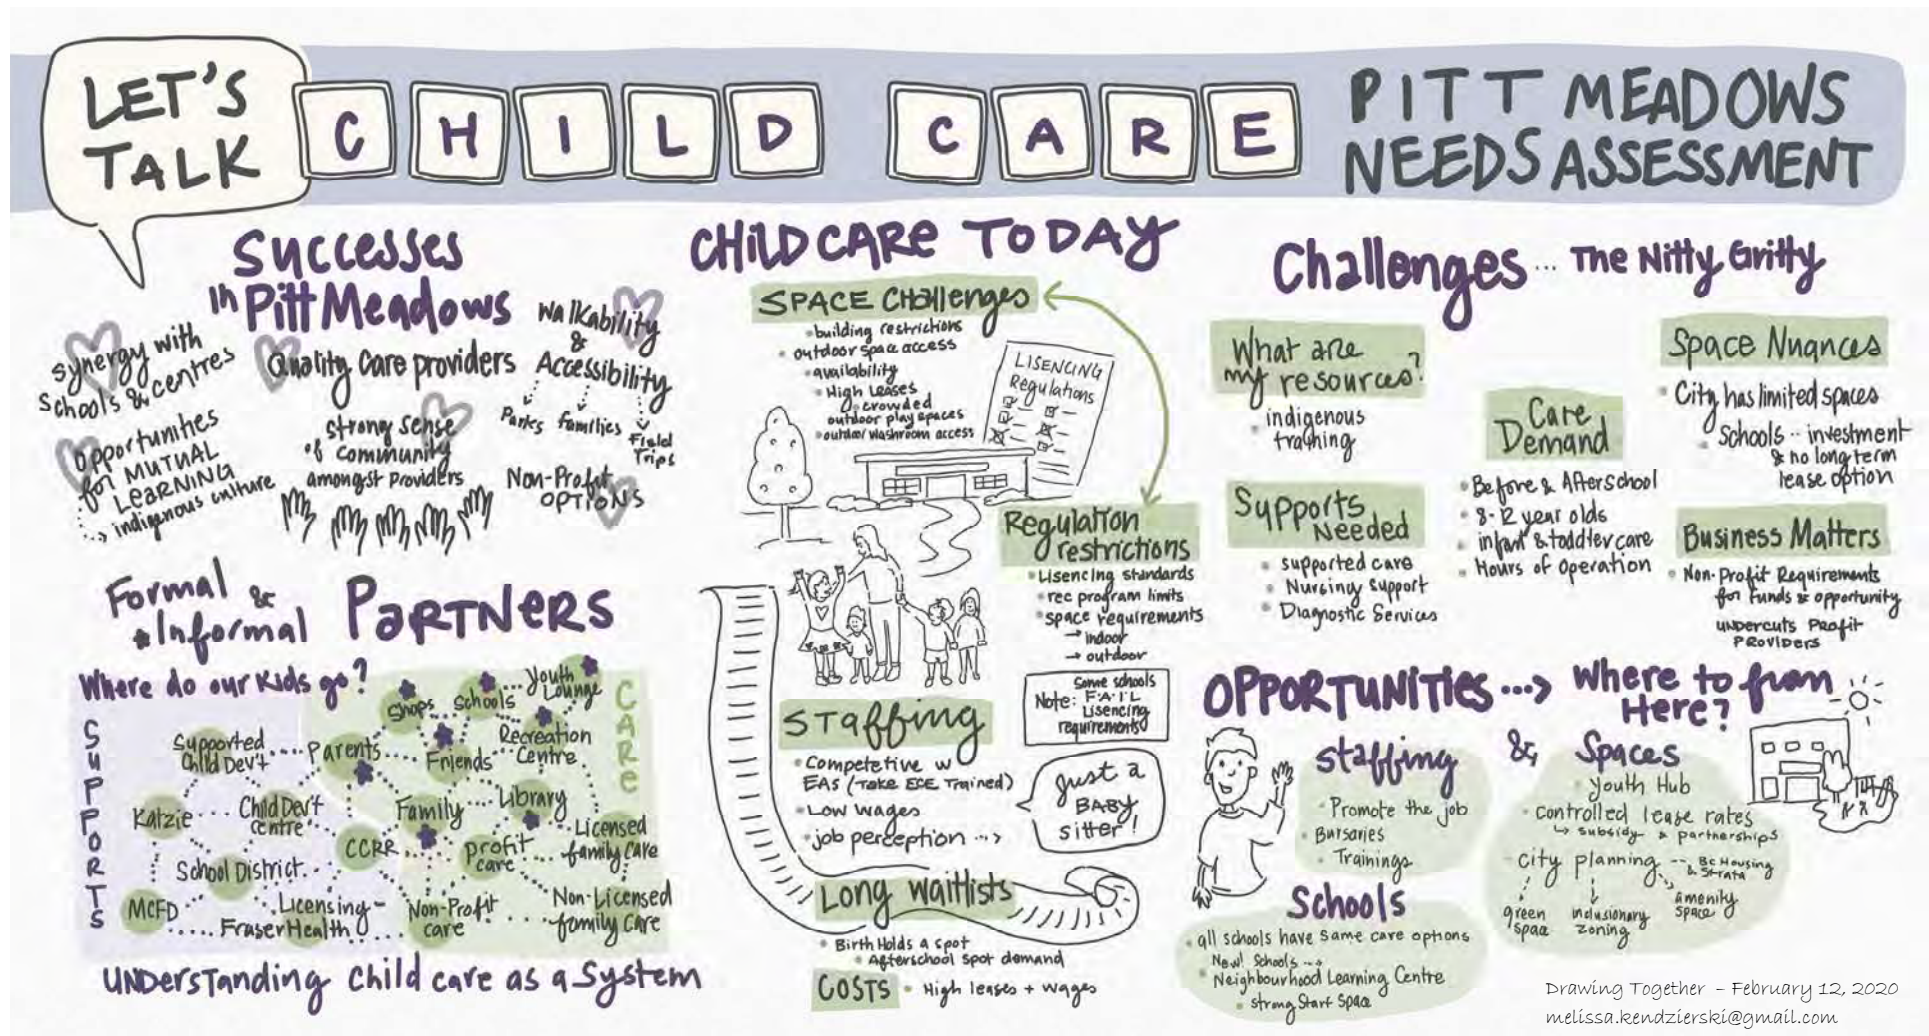 LET'S
TALK
CHILD CARE
PITT MEADOWS
NEEDS ASSESSMENT
Successes
in Pitt Meadows
synergy with
schools & centres
opportunities
for MUTUAL
LEARNING
indigenous culture
Quality Care providers
strong sense
of community
amongst providers
Walkability
&
Accessibility
Parks families Field
Trips
Non-Profit
OPTIONS
Formal &
Informal
PARTNERS
Where do our kids go?
SUPPORTS
CARE
Shops
Schools
Youth
Lounge
Supported
Child Dev't
Parents
Friends
Recreation
Centre
Katzie
Child Dev't
centre
Family
Library
CCRR
profit
care
Licensed
family care
School District
MCFD
Licensing-
Fraser Health
Non-Profit
care
Non-Licensed
family care
Understanding Child care as a System
CHILD CARE TODAY
SPACE Challenges
• building restrictions
• outdoor space access
• availability
• High Leases
crowded
outdoor play spaces
• outdoor washroom access
LISENCING
Regulations
Regulation
restrictions
• Lisencing standards
• rec program limits
• space requirements
→ indoor
→ outdoor
Note: Some schools
F.A.I.L
Lisencing
requirements
Staffing
• Competetive w
EAS (Take ECE Trained)
• Low Wages
• job perception
Just a
BABY
sitter!
Long Waitlists
• Birth Holds a spot
• Afterschool spot demand
COSTS • High leases + wages
Challenges ... The Nitty Gritty
What are
my resources?
• indigenous
training
Supports
Needed
• supported care
• Nursing support
• Diagnostic Services
Care
Demand
• Before & Afterschool
• 8-12 year olds
• infant & toddler care
• Hours of operation
Space Nuances
• City has limited spaces
• Schools .. investment
& no long term
lease option
Business Matters
• Non-Profit Requirements
for funds & opportunity
undercuts Profit
PROVIDERS
OPPORTUNITIES ...> Where to from
Here?
Staffing
• Promote the job
• Bursaries
• Trainings
&
Spaces
• Youth Hub
• controlled lease rates
↳ subsidy & partnerships
- city planning
BC Housing
& Strata
green
space
inclusionary
zoning
amenity
space
Schools
• all schools have same care options
New! Schools
• Neighbourhood Learning Centre
• strong Start Space
Drawing Together - February 12, 2020
melissa.kendzierski@gmail.com